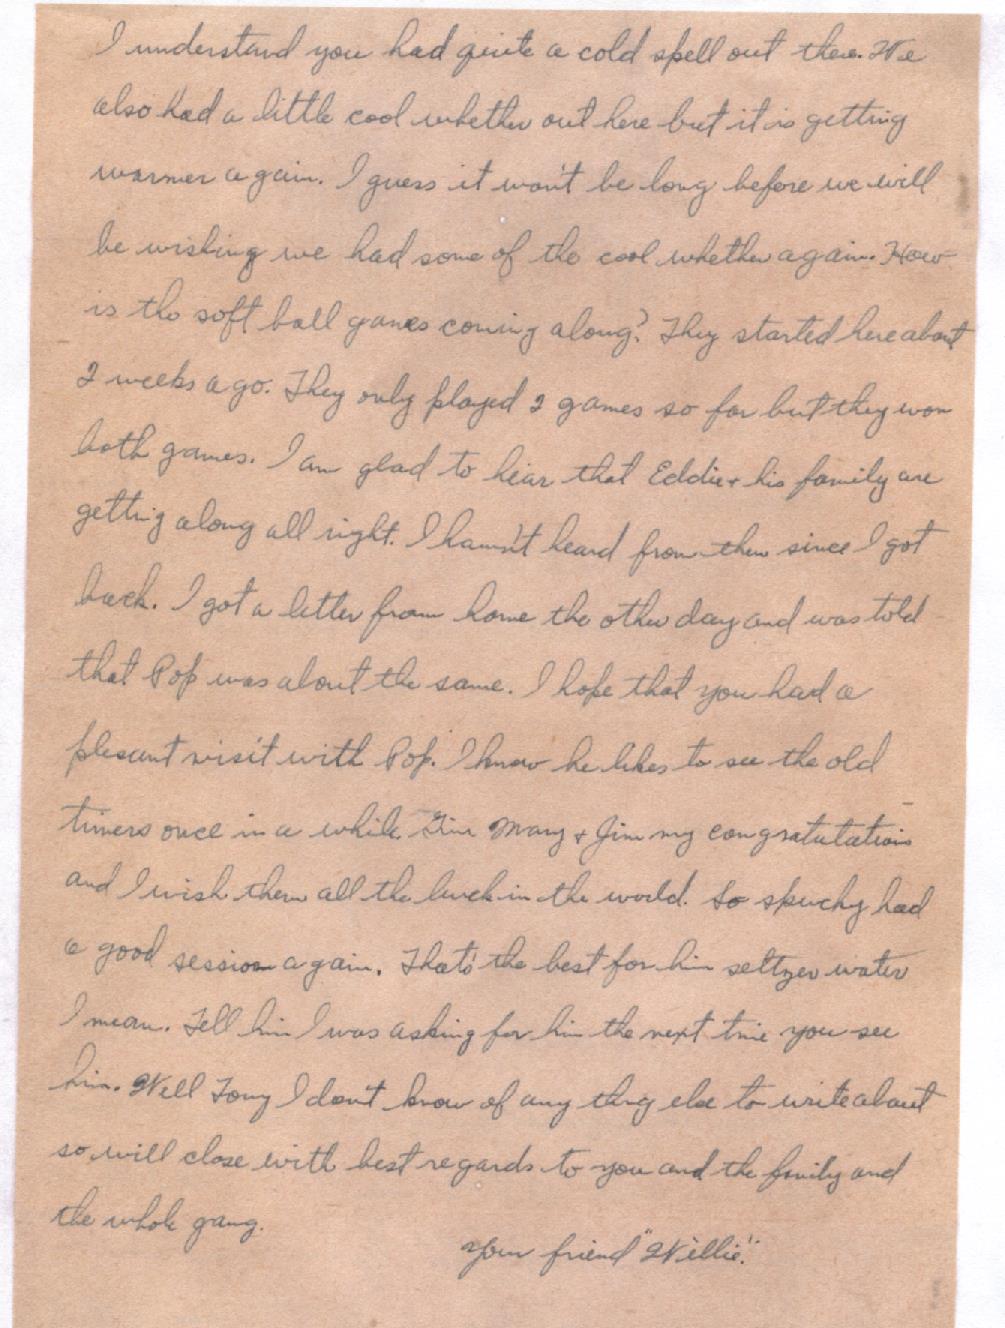 I understand you had quite a cold spell out there. We
also had a little cool whether out here but it is getting
warmer again. I guess it won't be long before we will
be wishing we had some of the cool whether again. How
is the soft ball games coming along? They started here about
2 weeks ago. They only played 2 games so far but they won
both games. I am glad to hear that Eddie + his family are
getting along all right. I havn't heard from them since I got
back. I got a letter from home the other day and was told
that Pop was about the same. I hope that you had a
plesant visit with Pop. I know he likes to see the old
timers once in a while. Give Mary + Jim my congratutations
and I wish them all the luck in the world. So had
a good session again. That's the best for him seltzer water
I mean. Tell him I was asking for him the next time you see
him. Well Tony I don't know of any thing else to write about
so will close with best regards to you and the family and
the whole gang.
Your friend "Willie".